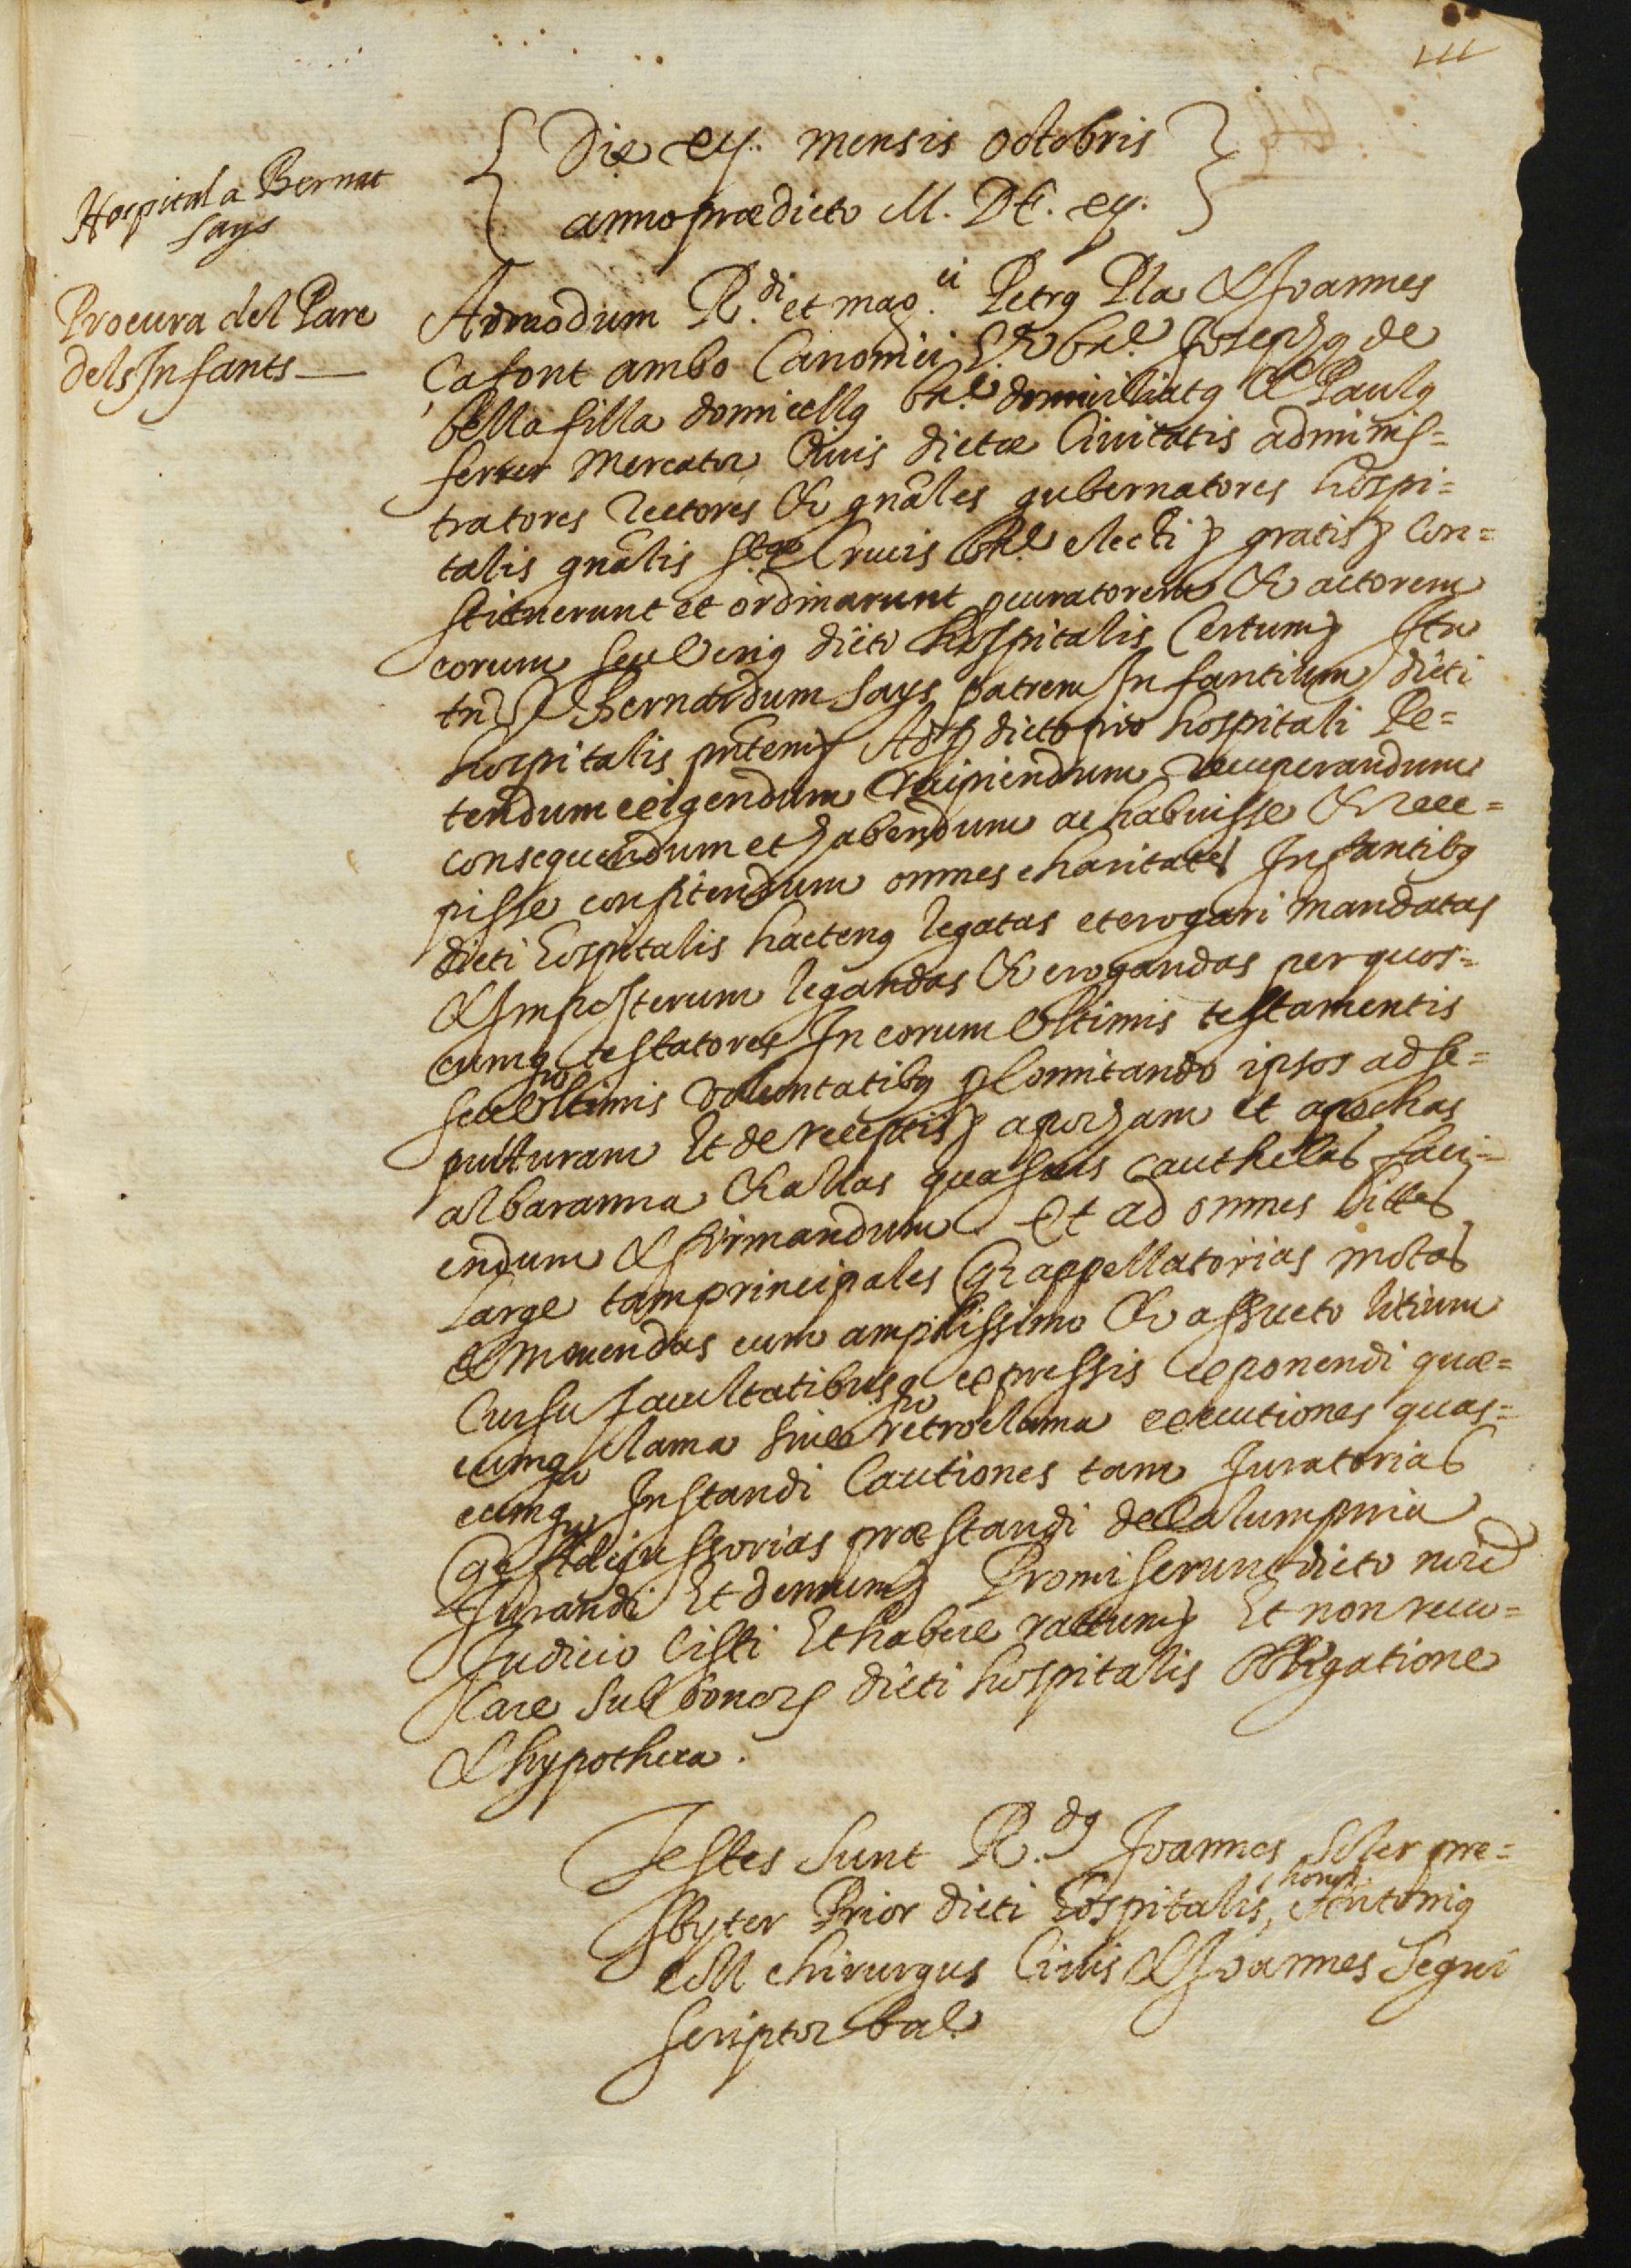 III
Hospital a Bernat
Says
Procura del Pare
dels Infants
Die xij. mensis octobris
anno prædicto M. DC. xij.
Admodum R.di et mag.ci Petrus Pla & Joannes
Çafont ambo Canonici Ecc.
bellafilla domicellus bar.e domiciliatus & Paulus
ferrer mercator Civis dictæ Civitatis adminis=
tratores rectores & gnãles gubernatores hospi=
talis gnãlis Stæ Crucis bar.e electi gratis Con=
stituerunt et ordinarunt procuratorem & actorem
eorum seu verius dicti hospitalis Certum Ita
Bernardum Says patrem Infantium dicti
hospitalis pntem Ad dicto pio hospitali Pe=
tendum exigendum recipiendum recuperandum
consequendum et habendum ac habuisse & rece=
pisse confitendum omnes charitates Infantibus
dicti hospitalis hactenus legatas et erogari mandatas
& Imposterum legandas & erogandas per quos=
cumque testatores In eorum ultimis testamentis
seu ultimis voluntatibus pro Comitando ipsos ad se=
pulturam Et de receptis apocham et apochas
albaranna & alias quasvis cauthelas faci=
endum & firmandum. Et ad omnes littes
large tam principales quam appellatorias motas
& movendas cum amplissimo & assueto litium
Cursu facultatibusque expressis exponendi quæ=
cumque clama sive retroclama executiones quas=
cumque Instandi Cautiones tam Juratorias
quam fidejussorias præstandi de Calumpnia
Jurandi Et demum Promiserunt dicto
Judicio sisti Et habere rattum Et non revo=
care sub bonorum dicti hospitalis obligatione
& hypotheca.
Testes sunt R.dus Joannes Soler pre=
sbyter Prior dicti hospitalis, honor. Antonius
chirurgus Civis & Joannes Segui
scriptor bar.e